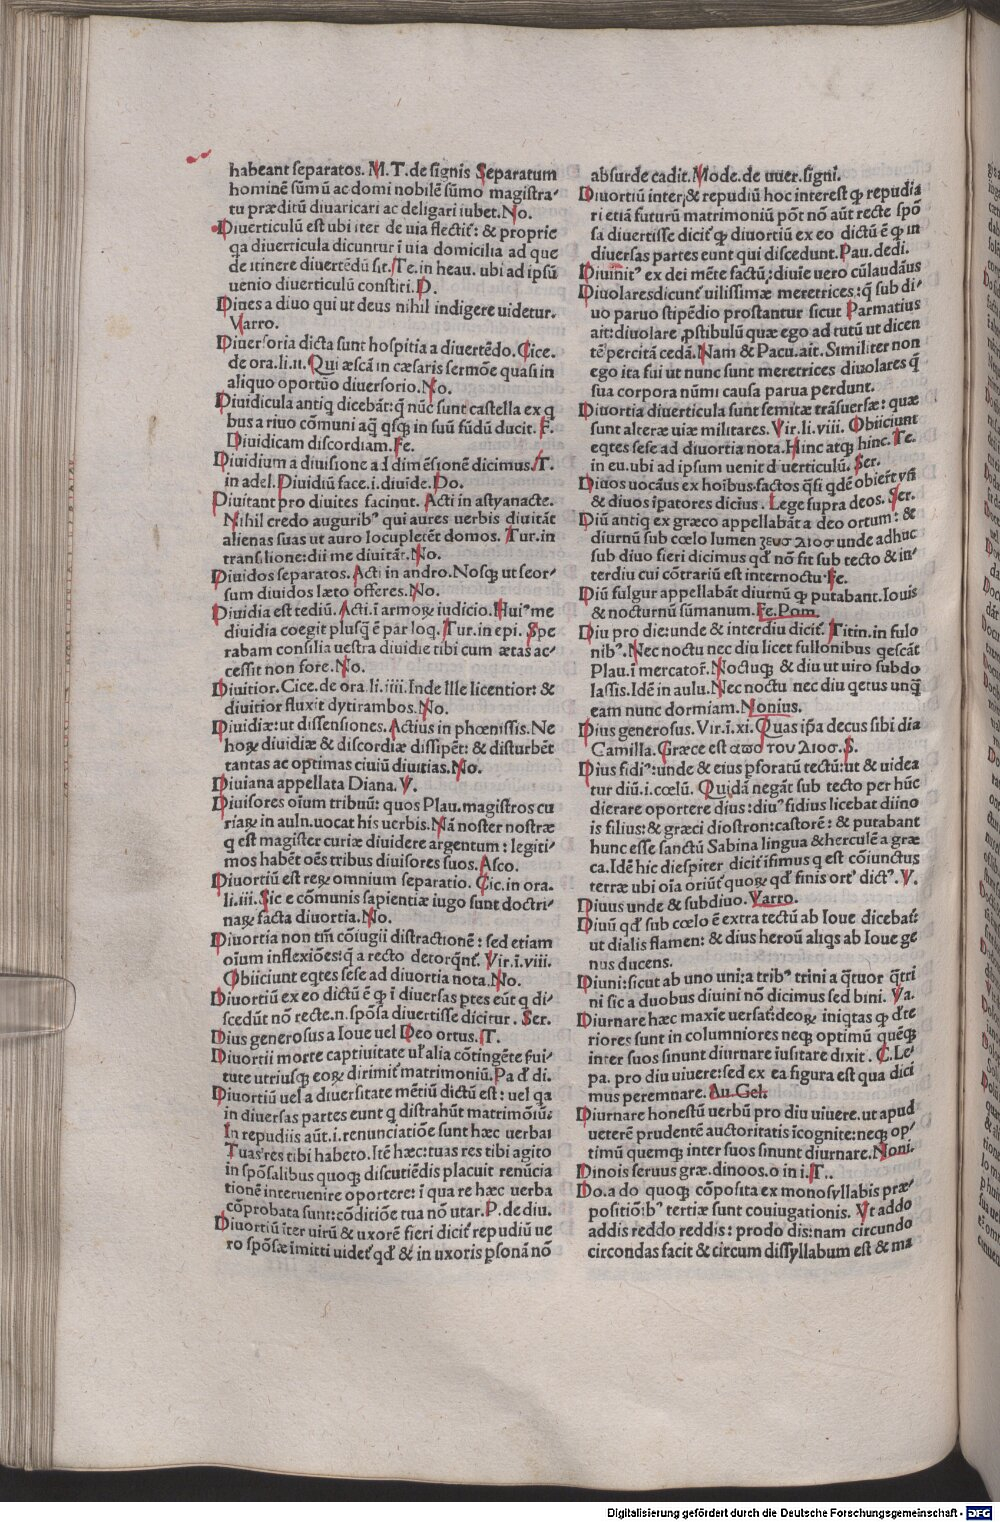 habeant separatos. M. T. de signis Separatum
hominē sūmū ac domi nobilē sūmo magistra⸗
tu præditū diuaricari ac deligari iubet. No.
Diuerticulū est ubi iter de uia flectit̄: & proprie
qa diuerticula dicuntur ī uia domicilia ad que
de itinere diuertēdū sit. Te. in heau. ubi ad ipsū
uenio diuerticulū constiti. D.
Dines a diuo qui ut deus nihil indigere uidetur.
Varro.
Diuersoria dicta sunt hospitia a diuertēdo. Cice.
de ora. li. ii. Qui æscā in cæsaris sermōe quasi in
aliquo oportūo diuersorio. No.
Diuidicula antiq dicebāt: q̄ nūc sunt castella ex q
bus a riuo cōmuni aq̄ qsq; in suū fūdū ducit. F.
Diuidicam discordiam. Fe.
Diuidium a diuisione a d dimēsionē dicimus. T.
in adel. Diuidiū face. i. diuide. Do.
Diuitant pro diuites facinut. Acti in astyanacte.
Nihil credo augurib' qui aures uerbis diuitāt
alienas suas ut auro locupletēt domos. Tur. in
translione: dii me diuitāt. No.
Diuidos separatos. Acti in andro. Nosq; ut seor⸗
sum diuidos læto offeres. No.
Diuidia est tediū. Acti. ī armoꝝ iudicio. Hui' me
diuidia coegit plusq̄ ē par loq. Tur. in epi. Spe
rabam consilia uestra diuidie tibi cum ætas ac⸗
cessit non fore. No.
Diuitior. Cice. de ora li. iiii. Inde Ille licentior: &
diuitior fluxit dytirambos. No.
Diuidiæ: ut dissensiones. Actius in phœnissis. Ne
horꝝ diuidiæ & discordiæ dissipēt: & disturbēt
tantas ac optimas ciuiū diuitias. No.
Diuiana appellata Diana. V.
Diuisores oīum tribuū: quos Plau. magistros cu
riaꝝ in auln. uocat his uerbis. Nā noster nostræ
q est magister curiæ diuidere argentum: legiti⸗
mos habēt oēs tribus diuisores suos. Asco.
Diuortiū est reꝝ omnium separatio. Cic. in ora.
li. iii. Sic e cōmunis sapientiæ iugo sunt doctri⸗
naꝝ facta diuortia. No.
Diuortia non tm̄ cōiugii distractionē: sed etiam
oīum inflexiōes: q̄ a recto detorqn̄t. Vir. ī. viii.
Obiiciunt eqtes sese ad diuortia nota. No.
Diuortiū ex eo dictū ē ꝙ ī diuersas ptes eūt q di⸗
scedūt nō recte. n. spōsa diuertisse dicitur. Ser.
Dius generosus a Ioue uel Deo ortus. T.
Diuortii morte captiuitate ul' alia cōtingēte fui⸗
tute utriusq; eoꝝ dirimit̄ matrimoniū. Pa d' di.
Diuortiū uel a diuersitate mētiū dictū est: uel qa
in diuersas partes eunt q distrahūt matrimōiū:
In repudiis aūt. i. renunciatiōe sunt hæc uerba:
Tuas res tibi habeto. Itē hæc: tuas res tibi agito
in spōsalibus quoq; discutiēdis placuit renūcia
tionē interuenire oportere: ī qua re hæc uerba
cōprobata sunt: cōditiōe tua nō utar. P. de diu.
Diuortiū īter uirū & uxorē fieri dicit̄ repudiū ue
ro spōsæ īmitti uidet̄ qd' & in uxoris psonā nō
absurde cadit. Mode. de uuer. signi.
Diuortiū inter; & repudiū hoc interest ꝙ repudia
ri etiā futurū matrimoniū pōt nō aūt recte spō
sa diuertisse dicit̄ ꝙ diuortiū ex eo dictū ē ꝙ in
diuersas partes eunt qui discedunt. Pau. dedi.
Diuinit' ex dei mēte factū: diuīe uero cūlaudāus
Diuolaresdicunt̄ uilissimæ meretrices: q̄ sub di⸗
uo paruo stipēdio prostantur sicut Parmatius
ait: diuolare, pstibulū quæ ego ad tutū ut dicen
tē percitā cedā. Nam & Pacu. ait. Similiter non
ego ita fui ut nunc sunt meretrices diuolares q̄
sua corpora nūmi causa parua perdunt.
Diuortia diuerticula sunt semitæ trāsuersæ: quæ
sunt alteræ uiæ militares. Vir. li. viii. Obiiciunt
eqtes sese ad diuortia nota. Hinc atq; hinc. Te.
in eu. ubi ad ipsum uenit d uerticulū. Ser.
Diuos uocāus ex hoībus factos q̄si qdē obierīt vn̄
& diuos īpatores dicius. Lege supra deos. Ser.
Diū antiq ex græco appellabāt a deo ortum: &
diurnū sub cœlo lumen ζευσ διοσ unde adhuc
sub diuo fieri dicimus qd' nō fit sub tecto & in⸗
terdiu cui cōtrariū est internoctu. Fe.
Diū fulgur appellabāt diurnū ꝙ putabant. Iouis
& nocturnū sūmanum. Fe. Pom.
Diu pro die: unde & interdiu dicit̄. Titin. in fulo
nib'. Nec noctu nec diu licet fullonibus qescāt
Plau. ī mercator̄. Noctuq; & diu ut uiro subdo
lassis. Idē in aulu. Nec noctu nec diu qetus unq̄
eam nunc dormiam. Nonius.
Dius generosus. Vir. ī. xi. Quas ip̄a decus sibi dia
Camilla. Græce est απο του διοσ. S.
Dius fidi': unde & eius pforatū tectū: ut & uidea
tur diū. i. cœlū. Quidā negāt sub tecto per hūc
dierare oportere dius: diu' fidius licebat diino
is filius: & græci diostron: castorē: & putabant
hunc esse sanctū Sabina lingua & herculē a græ
ca. Idē hic diespiter dicit̄ ifimus q est cōiunctus
terræ ubi oīa oriūt̄ quoꝝ qd' finis ort' dict'. V.
Diuus unde & subdiuo. Varro.
Diuū qd' sub cœlo ē extra tectū ab Ioue dicebat̄:
ut dialis flamen: & dius heroū aliqs ab Ioue ge
nus ducens.
Diuni: sicut ab uno uni: a trib' trini a q̄tuor q̄tri
ni sic a duobus diuini nō dicimus sed bini. Va.
Diurnare hæc maxīe uersat̄: deoꝝ iniqtas ꝙ d'te
riores sunt in columniores neq; optimū quēq;
inter suos sinunt diurnare iusitare dixit. C. Le⸗
pa. pro diu uiuere: sed ex ea figura est qua dici
mus peremnare. Au. Gel.
Diurnare honestū uerbū pro diu uiuere. ut apud
ueterē prudentē auctoritatis īcognite: neq; op⸗
timū quemq; inter suos sinunt diurnare. Noni.
Dinois seruus græ. dinoos. o in i. T..
Do. a do quoq; cōposita ex monosyllabis præ⸗
positiō: b' tertiæ sunt couiugationis. Vt addo
addis reddo reddis: prodo dis: nam circundo
circondas facit & circum dissyllabum est & ma
Digitalisierung gefördert durch die Deutsche Forschungsgemeinschaft - DFG